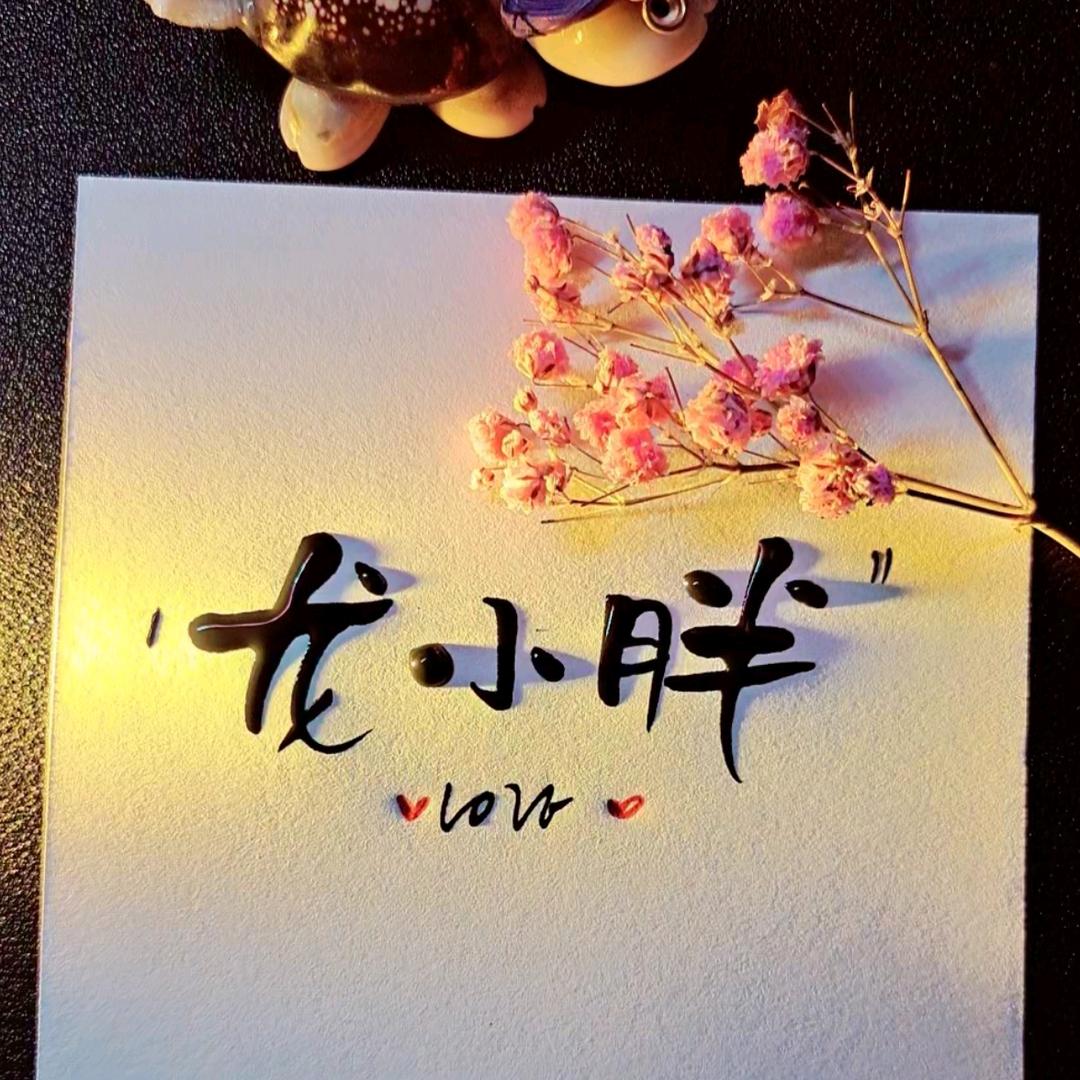 "龙小胖"
love